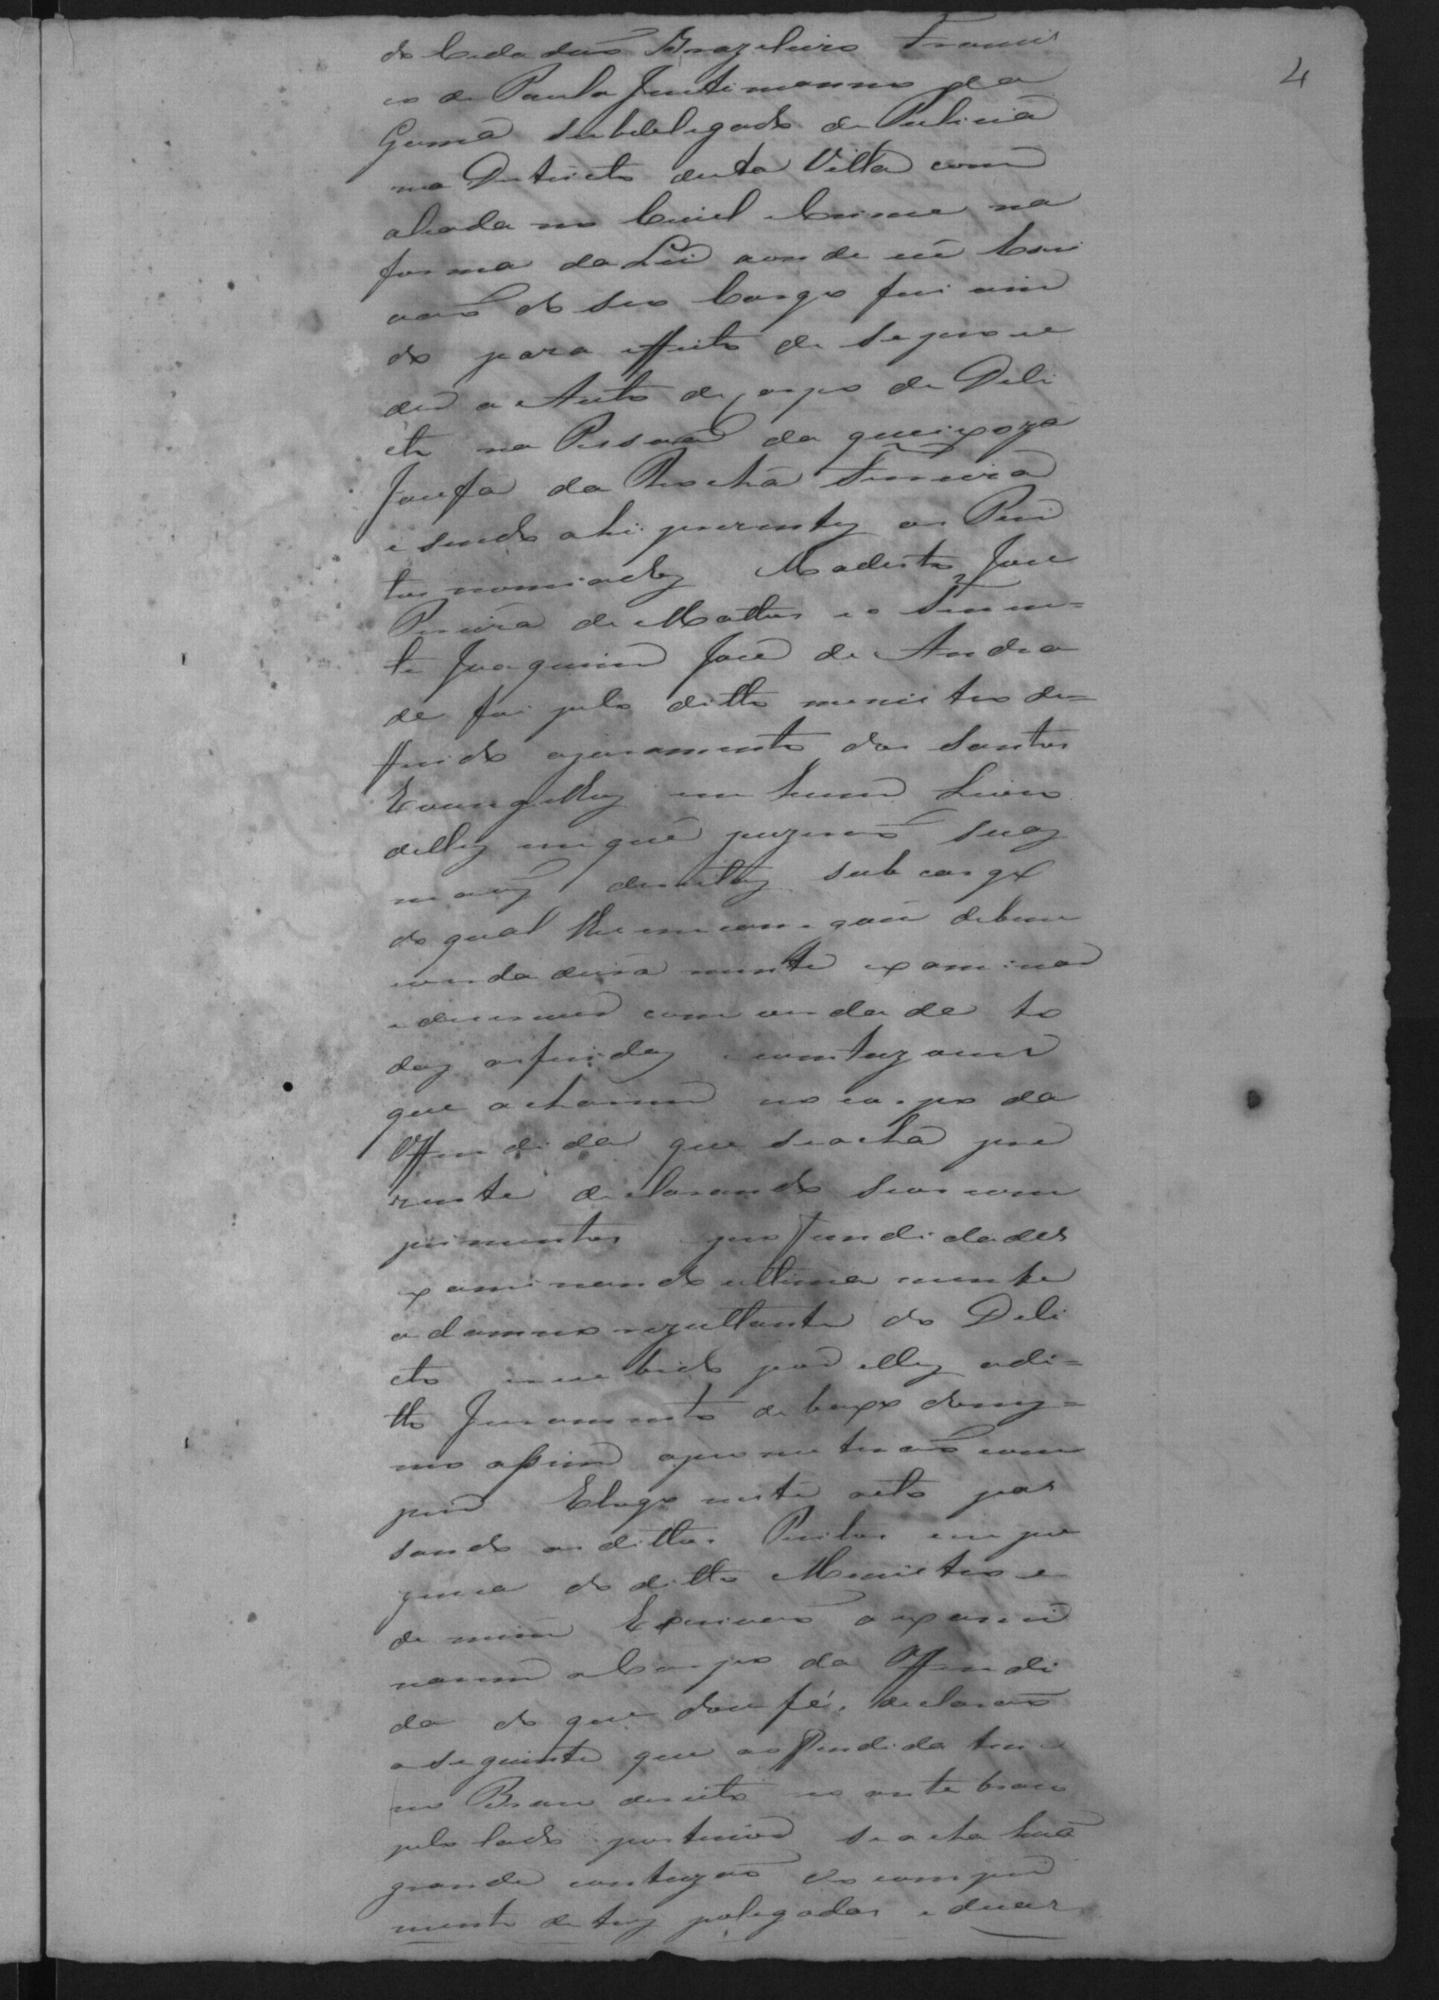 4
do Cidadão Brazileiro Francis
co de Paula Justimanno da
Gama Subdelegado de Pulicia
no Destricto desta Villa com
alsada no Civel e Crime na
forma da Lei aonde eu Escri
vaõ do seo Cargo fui vin
do para effeito de se proce
der a Auto de Corpo de Deli
cto na Pessoa da queixoza
Josefa da Rocha Ferreira
e sendo ahi prezentes os Peri
tos nomiados Modesto Jose
Pereira de Mattos e o Tenen=
te Joaquim José de Andra
de foi pelo ditto menistro de=
ffirido ojuramento dos Santos
Evangelhos em hum Livro
delles em que puzeraõ suas
maoñs direitas sub cargo
do qual lhe encarregou debem
verdadeiramente examinar
e declarar com verdade to
das asferidas e contuzoens
que acharem no corpo da
Offendida que seacha pre
zente declarando seos com
primentos profundidades
examinando ultimamente
o damno rezultante do Deli
cto recebido por elles odi=
tto Juramento debaxo domes=
mo assim o prometeraõ com
prir E logo neste acto pas
sando os dittos Peritos em pre
zença do ditto Menistro e
de mim Escrivaõ a exami
narem o Corpo da Offendi
da do que dou fé, declaraõ
o seguinte que aoffendida tem
no Braço direito no ante braço
pelo lado posterior se acha huã
grande contuzaõ do compri
mento de tres polegadas e duas